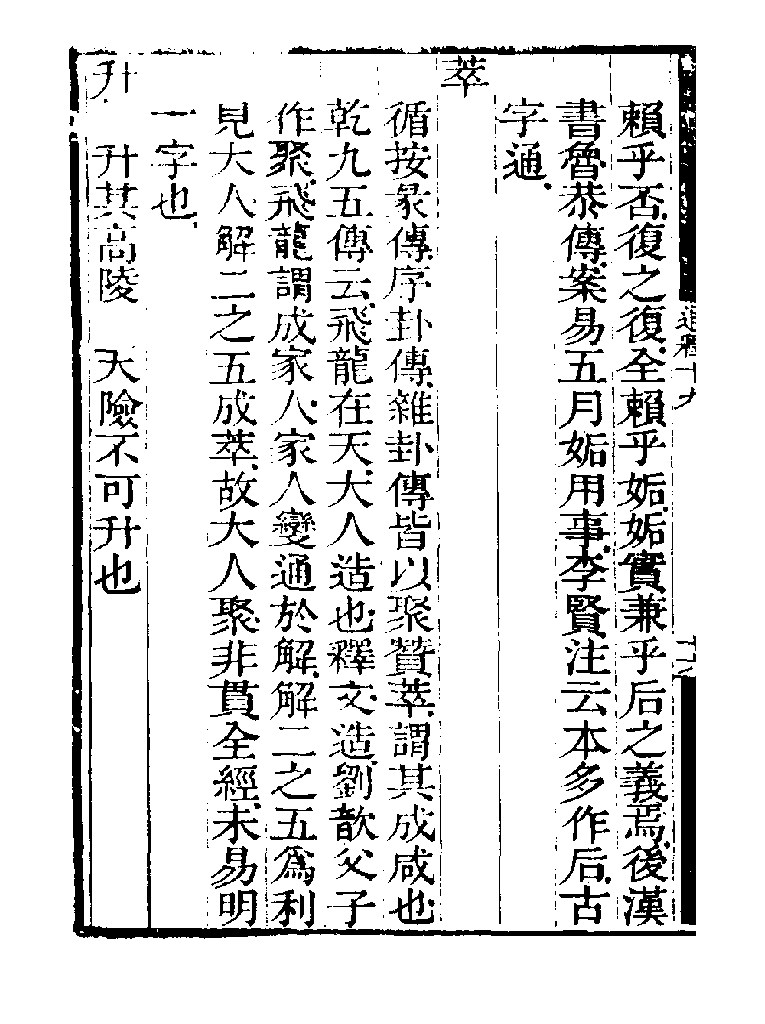 賴乎否復之復全賴乎姤姤實兼乎后之義焉後漢
書魯恭傳案易五月姤用事李賢注云本多作后古
字通
萃
循按彖傳序卦傳雜卦傳皆以聚贊萃謂其成咸也
乾九五傳云飛龍在天大人造也釋文造劉歆父子
作聚飛龍謂成家人家人變通於解解二之五爲利
見大人解二之五成萃故大人聚非貫全經未易明
一字也
升　升其高陵　天險不可升也